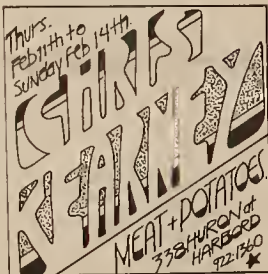 Thurs.
Feb 11th to
Sunday Feb 14th.
CHRIS
KEARNEY
MEAT + POTATOES.
338 HURON at
HARBORD
922-1360